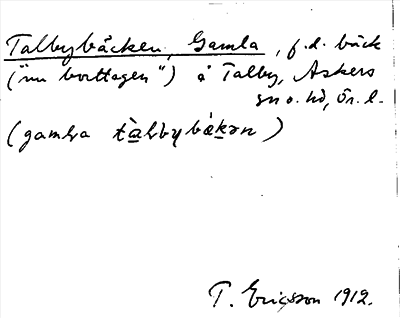 Talbybäcken, Gamla, f.d. bäck
("nu borttagen") å Talby, Askers
sn o. hd, Ör. l.
(gamla tàlbybǽkən)
T. Ericsson 1912.